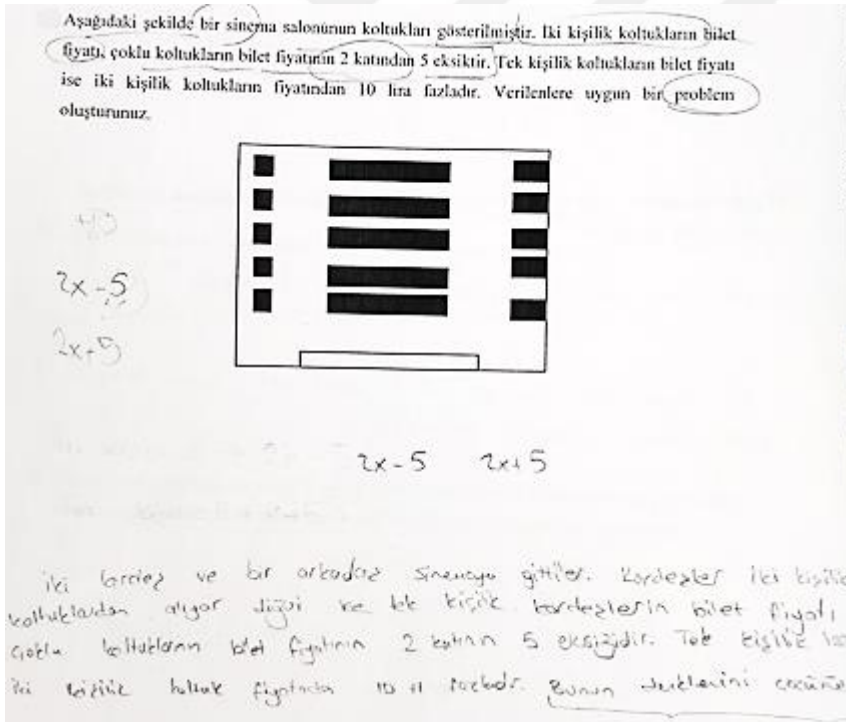 Aşağıdaki şekilde bir sinema salonunun koltukları gösterilmiştir. İki kişilik koltukların bilet
fiyatı, çoklu koltukların bilet fiyatının 2 katından 5 eksiktir. Tek kişilik koltukların bilet fiyatı
ise iki kişilik koltukların fiyatından 10 lira fazladır. Verilenlere uygun bir problem
oluşturunuz.
+10
2x-5
2x+5
2x-5 2x+5
iki kardeş ve bir arkadaş sinemaya gittiler. Kardeşler iki kişilik
koltuklardan alıyor diğeri ise tek kişilik kardeşlerin bilet fiyatı
çoklu koltukların bilet fiyatının 2 katının 5 eksiğidir. Tek kişilik
iki kişilik koltuk fiyatından 10 tl fazladır. Bunun